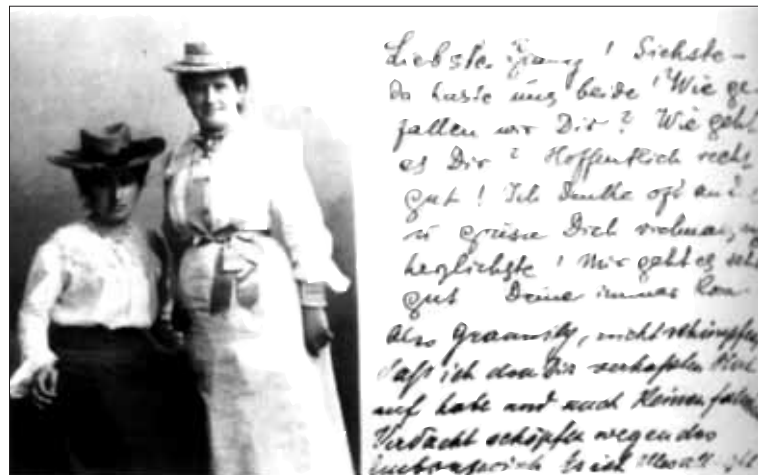 Liebster Granny! Siehste –
Da haste uns beide! Wie ge-
fallen wir Dir? Wie geht
es Dir? Hoffentlich recht
gut! Ich denke oft an
u grüsse Dich vielmals,
herzlichste! Mir geht es sehr
gut Deine immer
Also Grannily, nicht schimpfen,
daß ich den Dir verhaßten Hut
auf habe und auch keinen falschen
Verdacht schöpfen wegen des